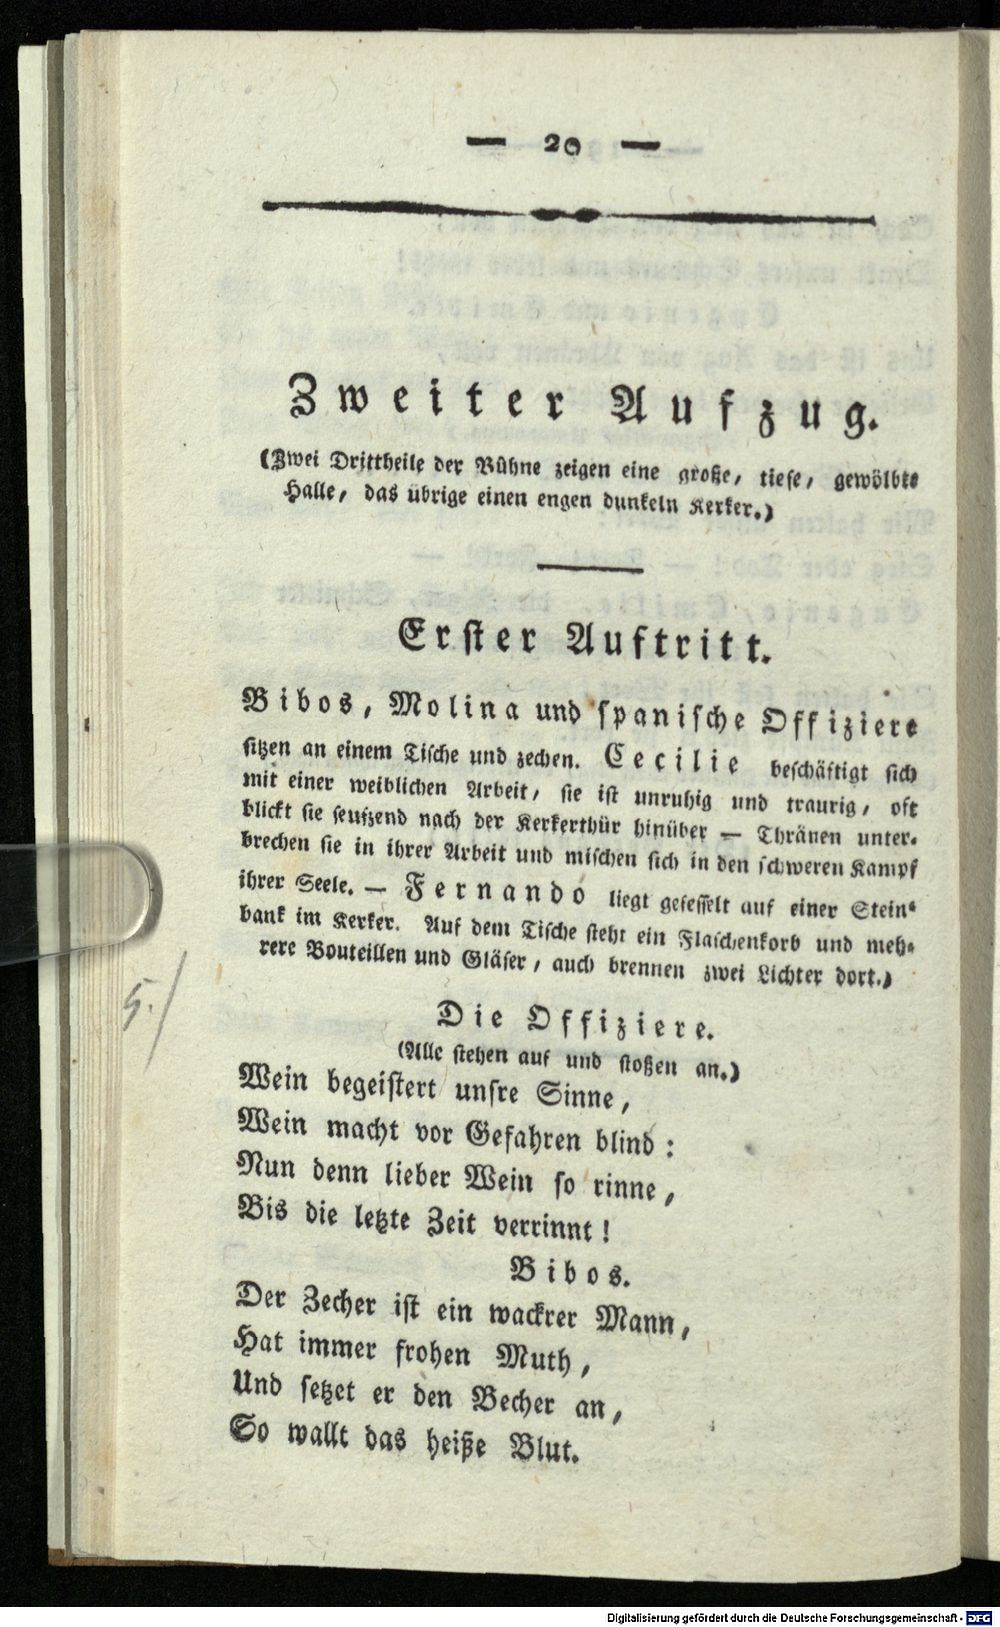 — 20 —
Zweiter Aufzug.
(Zwei Drittheile der Bühne zeigen eine große, tiefe, gewölbte
Halle, das übrige einen engen dunkeln Kerker.)
Erster Auftritt.
Bibos, Molina und spanische Offiziere
sitzen an einem Tische und zechen. Cecilie beschäftigt sich
mit einer weiblichen Arbeit, sie ist unruhig und traurig, oft
blickt sie seufzend nach der Kerkerthür hinüber — Thränen unter-
brechen sie in ihrer Arbeit und mischen sich in den schweren Kampf
ihrer Seele. — Fernando liegt gefesselt auf einer Stein-
bank im Kerker. Auf dem Tische steht ein Flaschenkorb und meh-
rere Bouteillen und Gläser, auch brennen zwei Lichter dort.)
5./
Die Offiziere.
(Alle stehen auf und stoßen an.)
Wein begeistert unsre Sinne,
Wein macht vor Gefahren blind:
Nun denn lieber Wein so rinne,
Bis die letzte Zeit verrinnt!
Bibos.
Der Zecher ist ein wackrer Mann,
Hat immer frohen Muth,
Und setzet er den Becher an,
So wallt das heiße Blut.
Digitalisierung gefördert durch die Deutsche Forschungsgemeinschaft - DFG